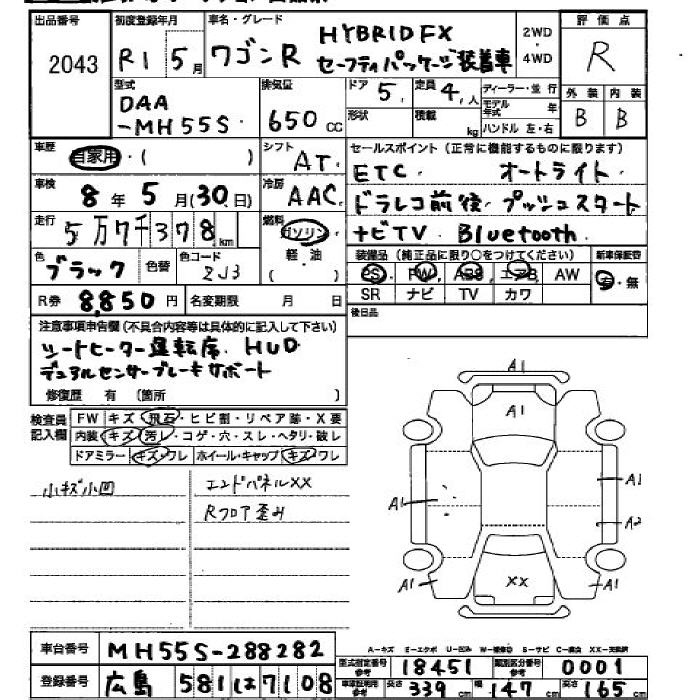 出品番号 初度登録年月 車名・グレード 評価点
2043 R1 5月 ワゴンR HYBRID FX 2WD・4WD R
セーフティパッケージ装着車
型式 排気量 ドア 5 定員 4人 ディーラー・並行 外装 内装
DAA-MH55S 650cc 形状 積載 kg モデル年式 年 ハンドル 左・右 B B
車歴 自家用・( ) シフト AT セールスポイント(正常に機能するものに限ります)
ETC オートライト
車検 8年5月(30日) 冷房 AAC ドラレコ前後 プッシュスタート
走行 5万7千378km 燃料 ガソリン ナビTV Bluetooth
軽・油 装備品(純正品に限り○をつけてください) 新車保証書
色 ブラック 色替 色コード ZJ3 PS PW ABS エアB AW 有・無
SR ナビ TV カワ
R券 8,850円 名変期限 月 日 後日品
注意事項申告欄(不具合内容等は具体的に記入して下さい)
シートヒーター運転席 HUD
デュアルセンサーブレーキサポート
修復歴 有 (箇所 )
検査員記入欄 FW キズ・飛石・ヒビ割・リペア跡・X要
内装 キズ・汚レ・コゲ・穴・スレ・ヘタリ・破レ
ドアミラー キズ・ワレ ホイール・キャップ キズ・ワレ
小キズ小凹 エンドパネルXX
Rフロア歪み
A1
A1
A1 A1
A2
XX
A1 A1
A-キズ E-エクボ U-凹み W-補修跡 S-サビ C-腐食 XX-交換済
車台番号 MH55S-288282 型式指定番号 参考 18451 類別区分番号 参考 0001
登録番号 広島 581 は 7108 車車証明用 参考 長さ 339cm 幅 147cm 高さ 165cm